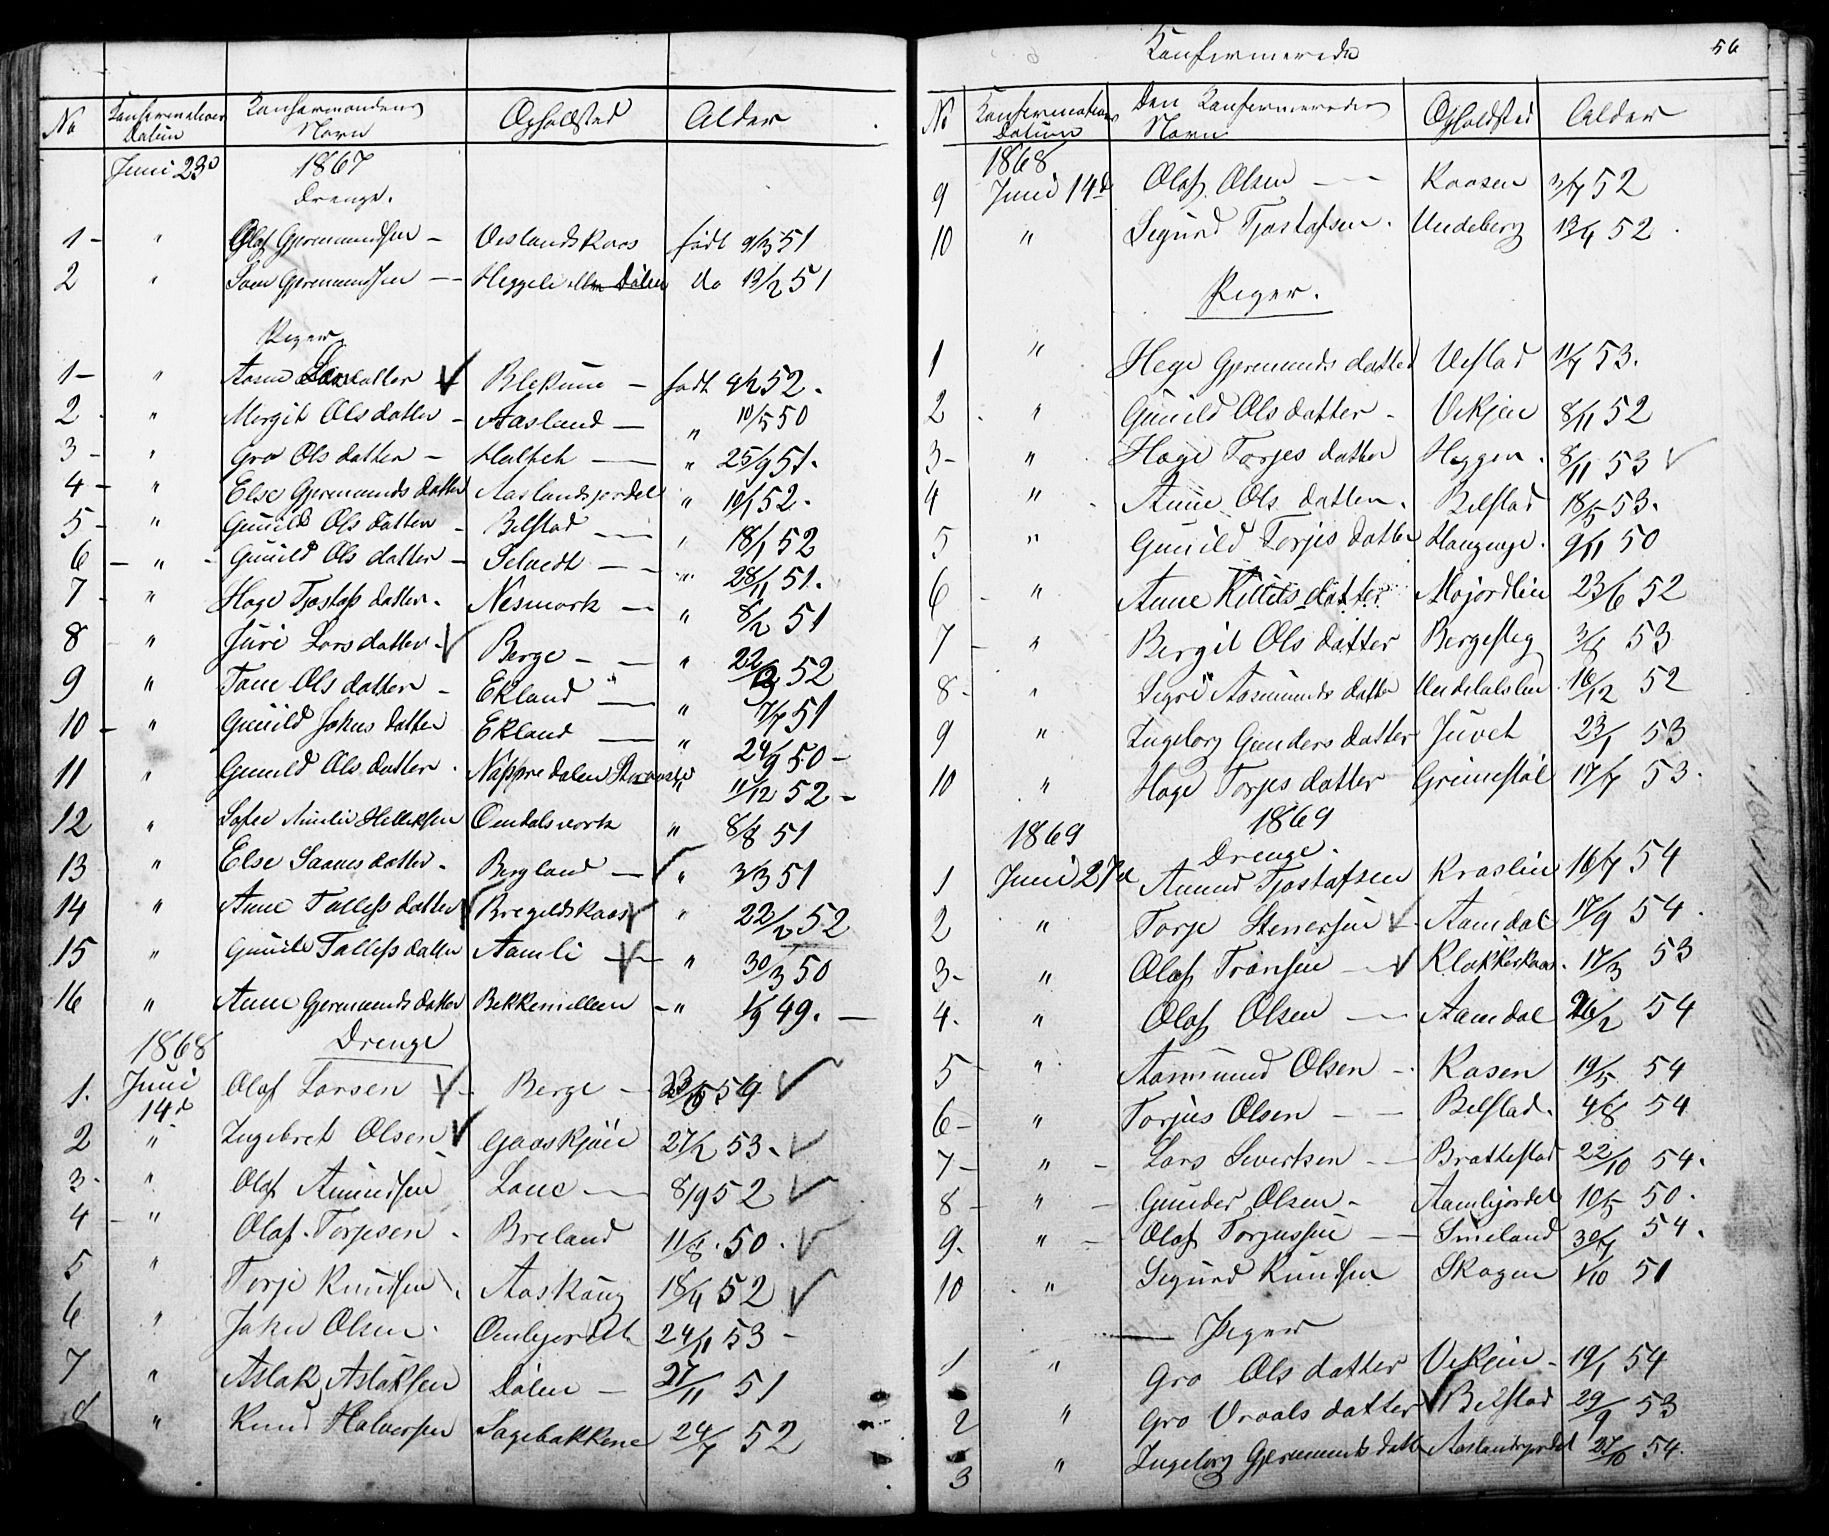 No Konfirmations Datum Konfirmandens Navn Opholdsted Alder
Juni 23d 1867
Drenge.
1 - " Olaf Gjermundsen - Veslandskaas født 9/3 51
2 " Gjermundsen - Heggeli Dalen do 19/2 51
Piger
1 - " Aasne datter - - født 9/2 52.
2 - " Margit Olsdatter - Aasland - " 10/5 50
3 - " Gro Olsdatter - - " 25/9 51.
4 - " Else Gjermundsdatter Aaslandsjordet " 10/1 52.
5 - " Gunild Olsdatter - Belstad - " 18/1 52
6 - " - Gunild Olsdatter - Selvedt - " 28/11 51.
7 - " Hage Tjostafsdatter. Nesmork - " 8/2 51
8 - " Juri Larsdatter - Berge - - " 22/ 52
9 " Tone Olsdatter - Ekland - " 7/7 51
10 - " Gunild Johnsdatter Ekland - " 24/9 50 -
11 " Gunild Olsdatter. Nappredalen " 11/12 52 -
12 " Amelie Helleksen Omdalsvork " 8/8 51
13 " Else Saavesdatter. Bergland - " 3/3 51
14 " Anne Tallefsdatter Bregeldskaas " 22/2 52
15 " Gunild Tallefsdatter Aamli - " 30/3 50
16 " Anne Gjermundsdatter Bekkemellem - " 1/9 49. -
1868 Drenge
1. Juni 14d Olaf Larsen Berge -
2 " Ingebret Olsen Gaaskjøn 27/2 53.
3 - " Olaf Amundsen Lone - 8/9 52
4 - " Olaf Torjesen. Breland 11/8. 50.
5 " Torje Knudsen. Aaskaug 18/4 52
6 " John Olsen. Omlijordet 24/11 53 -
7 " Aslak Aslaksen Dalen - 27/11 51
8 " Knud Halvorsen Sagebakkene 24/7 52
Konfirmerede 56
No Konfirmations Datum Den Konfirmeredes Navn Opholdsted Alder
1868
9 Juni 14d Olaf Olsen - Raasen 3/7 52
10 " Sigurd Tjostafsen. Undeberg 13/4 52.
Piger.
1 " Hege Gjermundsdatter Vestad 11/7 53.
2 . " Gunild Olsdatter - Vekjen 8/11 52
3 - " Hage Torjesdatter Heggen. 8/11 53
4 " Anne Olsdatter. Belstad 18/5 53.
5 " Gunild Torjesdatter Haugenge. 9/11 50
6 - " Anne Killelsdatter Mojordlien 23/6 52
7 - " Bergit Olsdatter Bergesteg 3/5 53
8 - " Sigri Aasmundsdatter 16/12 52
9 " Ingeborg Gundersdatter Juvet 23/1 53
10 " Hage Torjesdatter Greimestøl 17/7 53.
1869 1869
Drenge.
1 Juni 27d Amund Tjostafsen Kraslien 16/7 54
2 " Torje Stenersen - Aamdal 17/9 54.
3 - " Olaf Tronsen - Klokkerkaas. 17/3 53
4. " Olaf Olsen - Aamdal /2 54
5 " Aasmund Olsen - Rasen 19/5 54
6 - " Torjus Olsen - - Belstad. 4/8 54
7 - " - Lars Sivertsen - - Brattestad 22/10 54.
8 - " - Gunder Olsen - Aamlijordet 10/5 50.
9. " - Olaf Torjussen - - Smeland 30/7 54.
10 . " Sigurd Knudsen Skogen 1/10 51
Piger
1 " Gro Olsdatter Vekjen - 19/1 54
2 " Gro Vraalsdatter Belstad 29/9 53
3 " Ingeborg Gjermundsdatter Aaslandsjordet 27/10 54.